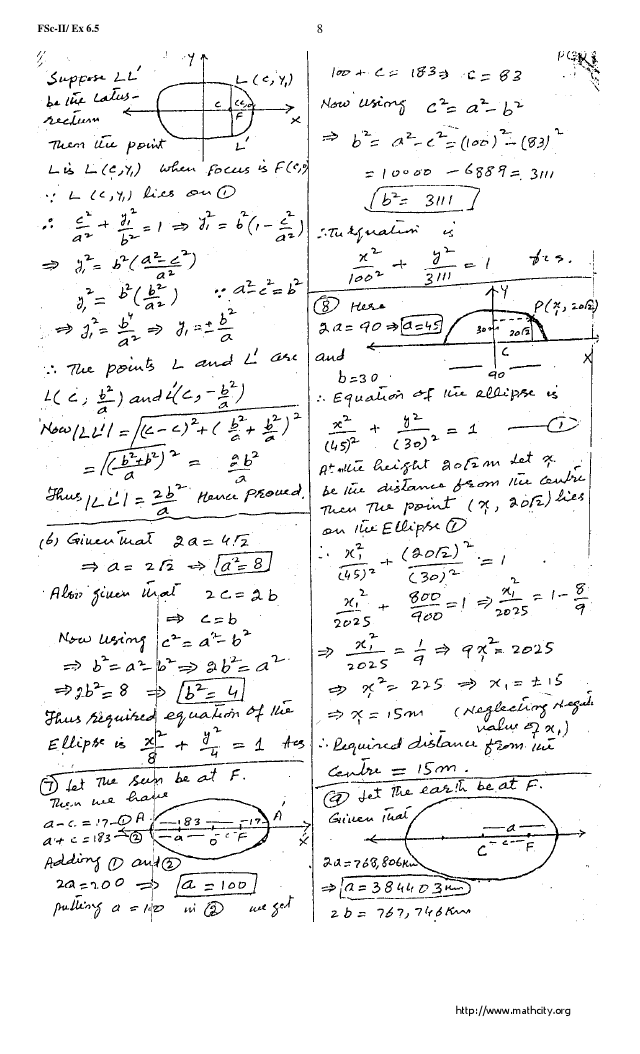 FSc-II/ Ex 6.5
8
Suppose LL'
be the Latus-
rectum
Then the point
L is L(c,y₁) when focus is F(c,0)
∵ L(c,y₁) lies on ①
∴ c²/a² + y₁²/b² = 1 ⇒ y₁² = b²(1 - c²/a²)
⇒ y₁² = b²(a²-c²/a²)
y₁² = b²(b²/a²) ∵ a²-c²=b²
⇒ y₁² = b⁴/a² ⇒ y₁ = ± b²/a
∴ The points L and L' are
L(c, b²/a) and L'(c, -b²/a)
Now |LL'| = √(c-c)²+(b²/a + b²/a)²
= √(b²+b²/a)² = 2b²/a
Thus |LL'| = 2b²/a Hence Proved.
Y
L(c,y₁)
C
(c,0)
F
X
L'
(b) Given that 2a = 4√2
⇒ a = 2√2 ⇒ a² = 8
Also given that 2c = 2b
⇒ c = b
Now using c² = a²-b²
⇒ b² = a²-b² ⇒ 2b² = a²
⇒ 2b² = 8 ⇒ b² = 4
Thus required equation of the
Ellipse is x²/8 + y²/4 = 1 Ans
⑦ Let the sun be at F.
Then we have
a-c = 17 -① A
a+c = 183 -②
183
17
A'
a
c
O
F
X
Adding ① and ②
2a = 200 ⇒ a = 100
putting a = 100 in ② we get
100 + c = 183 ⇒ c = 83
Now using c² = a²-b²
⇒ b² = a²-c² = (100)²-(83)²
= 10000 - 6889 = 3111
b² = 3111
∴ The equation is
x²/100² + y²/3111 = 1
⑧ Here
2a = 90 ⇒ a = 45
and
b = 30
Y
P(x₁, 20√2)
30
20√2
C
X
90
∴ Equation of the ellipse is
x²/(45)² + y²/(30)² = 1 —①
At the height 20√2 m Let x₁
be the distance from the centre
Then the point (x₁, 20√2) lies
on the Ellipse ①
∴ x₁²/(45)² + (20√2)²/(30)² = 1
x₁²/2025 + 800/900 = 1 ⇒ x₁²/2025 = 1 - 8/9
⇒ x₁²/2025 = 1/9 ⇒ 9x₁² = 2025
⇒ x₁² = 225 ⇒ x₁ = ±15
⇒ x = 15m (Neglecting Negati
value of x₁)
∴ Required distance from the
Centre = 15m.
⑨ Let the earth be at F.
Given that
a
C
c
F
2a = 768,806 Km
⇒ a = 384403 Km
2b = 767,746 Km
http://www.mathcity.org